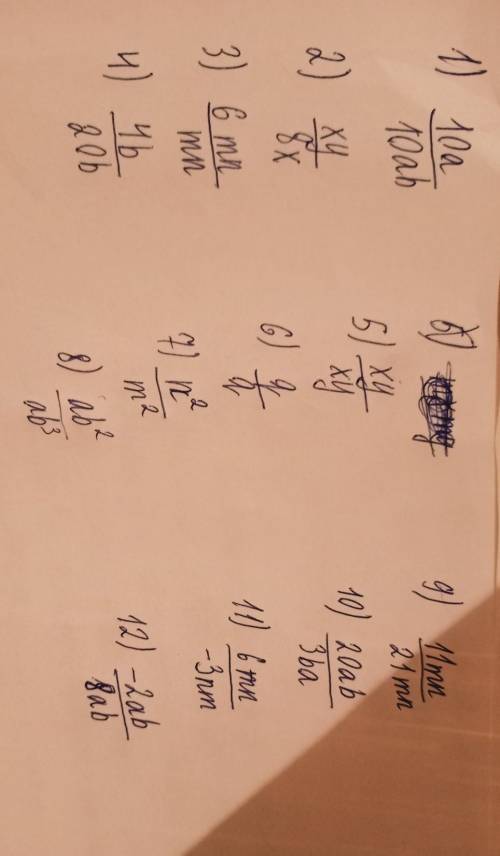 1) 10a/10ab
2) xy/8x
3) 6mn/mn
4) 4b/20b
б)
5) xy/xy
6)
7) n²/m²
8) ab²/ab³
9) 11mn/21mn
10) 20ab/3ba
11) 6mn/-3nm
12) -2ab/8ab